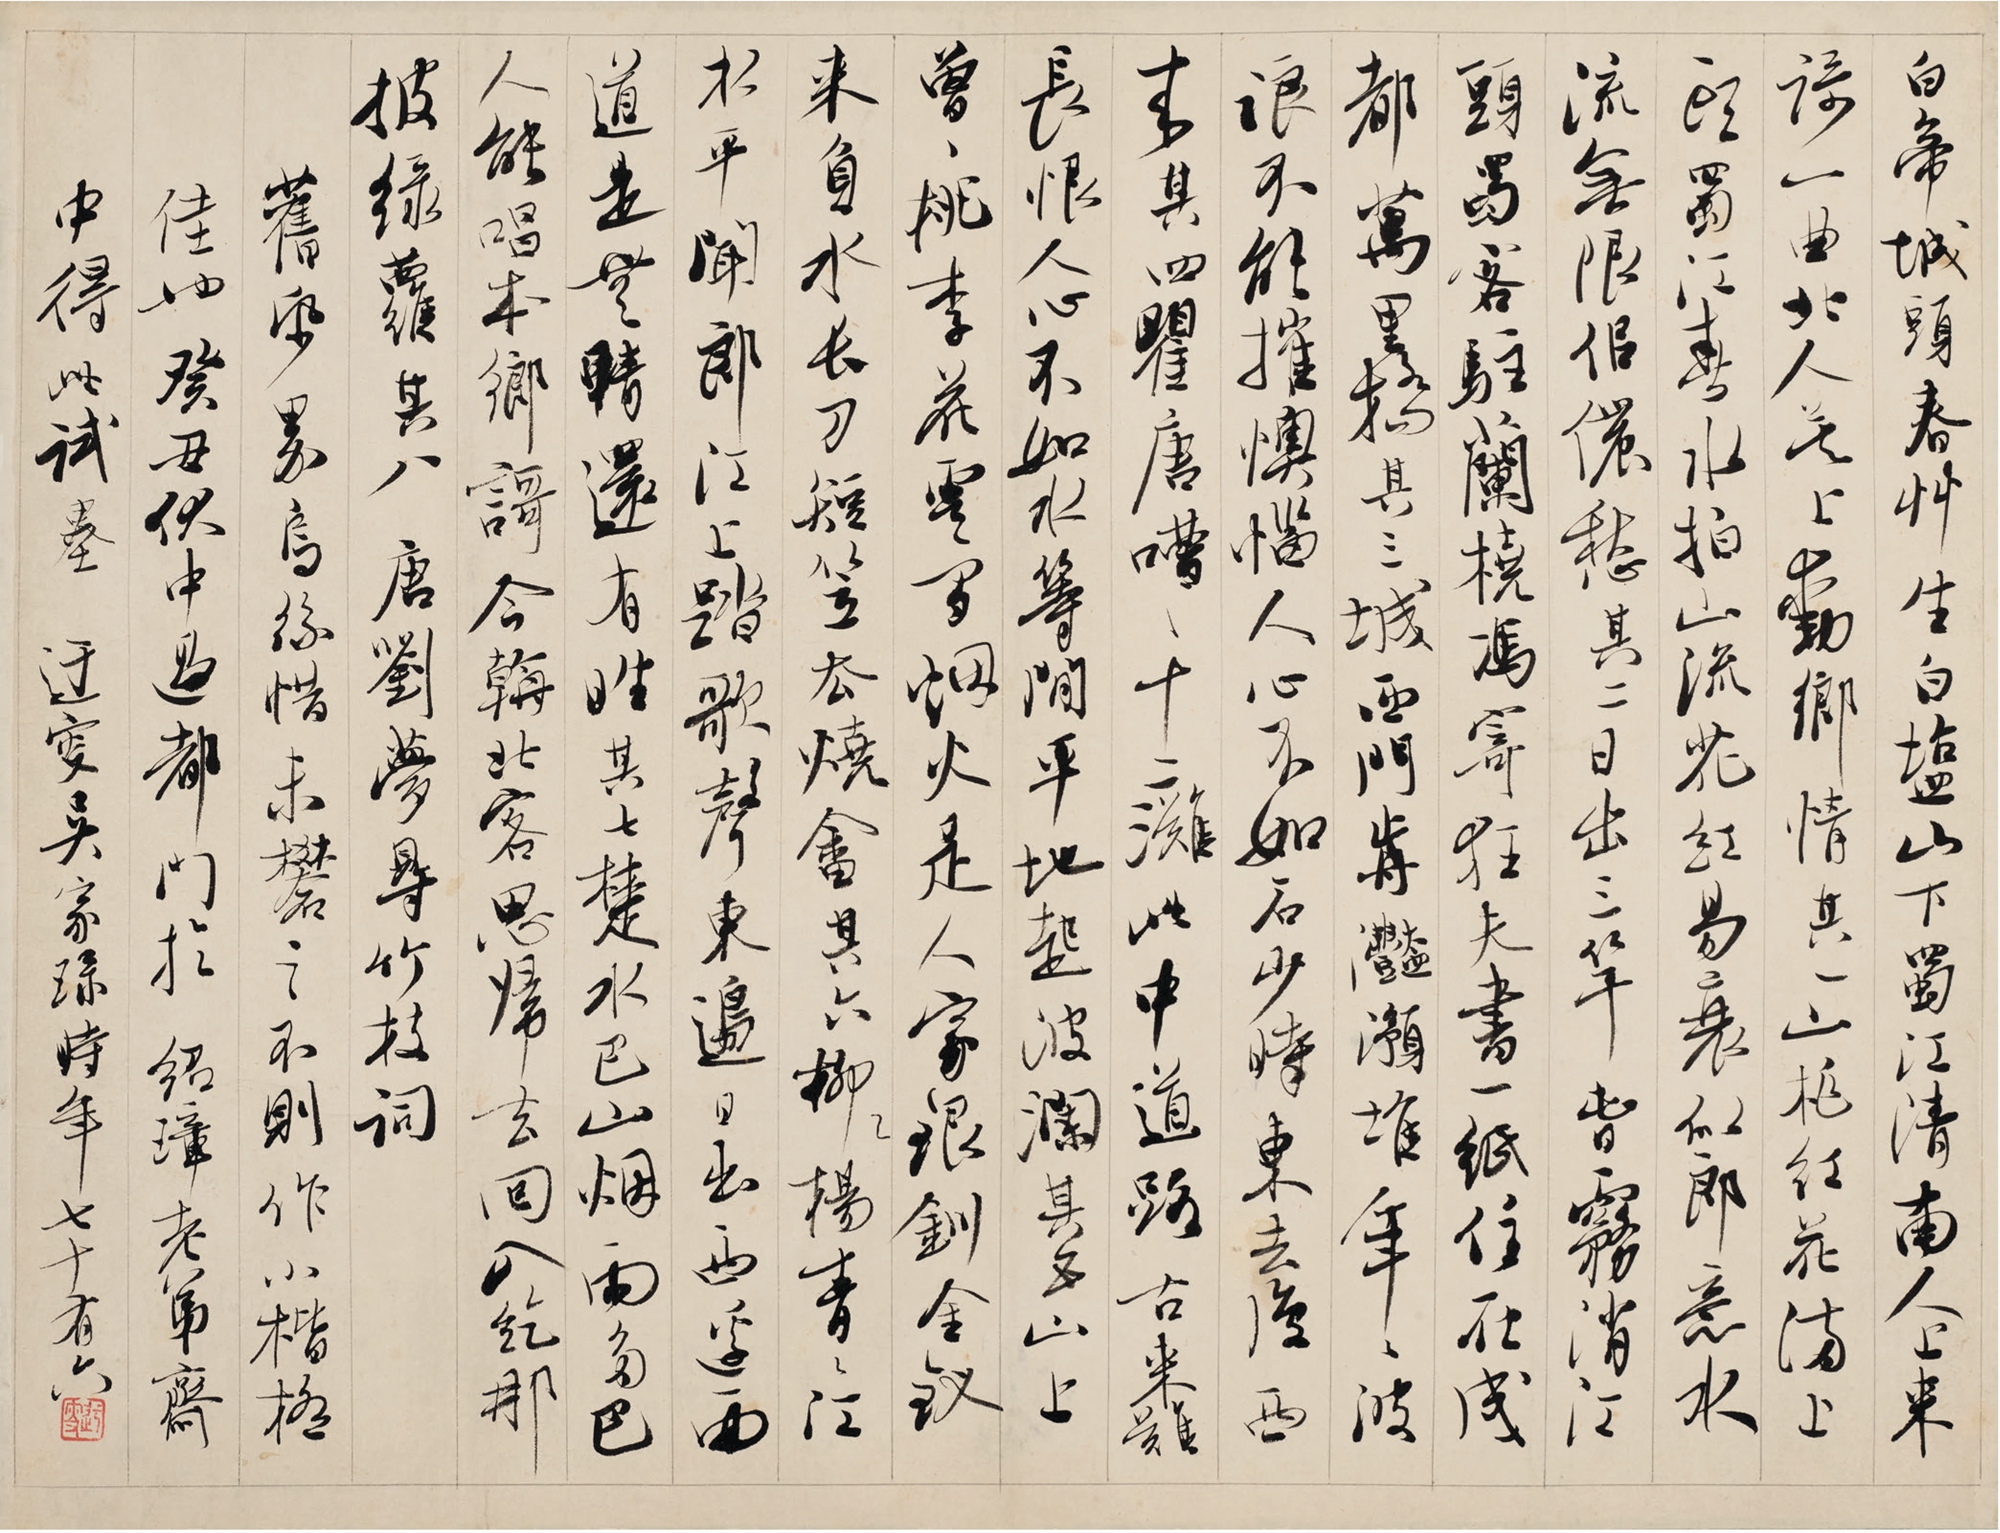 白帝城頭春艸生白塩山下蜀江清南人上来
謌一曲北人莫上動鄉情其一山桃红花滿上
頭蜀江春水拍山流花红易衰似郎意水
流無限佀儂愁其二日出三竿春霧消江
頭蜀客駐蘭橈馮寄狂夫書一紙住在成
都萬里橋其三城西門前灔澦堆年〻波
浪不能摧懊惱人心不如石少時東去復西
来其四瞿唐嘈〻十二灘此中道路古来難
長恨人心不如水等閒平地起波瀾其五山上
曾〻桃李花雲間烟火是人家銀釧金釵
来負水長刀短笠去燒畬其六楊柳青〻江
水平聞郎江上踏歌聲東邊日出西邊雨
道是無晴還有晴其七楚水巴山烟雨多巴
人能唱本鄉謌今朝北客思歸去回入紇那
披綠蘿其八 唐劉夢得竹枝詞
舊界烏絲惜未礬之不則作小楷極
佳也癸丑伏中過都門於紹璋老弟齋
中得此試墨 迂叟吴家琭時年七十有六